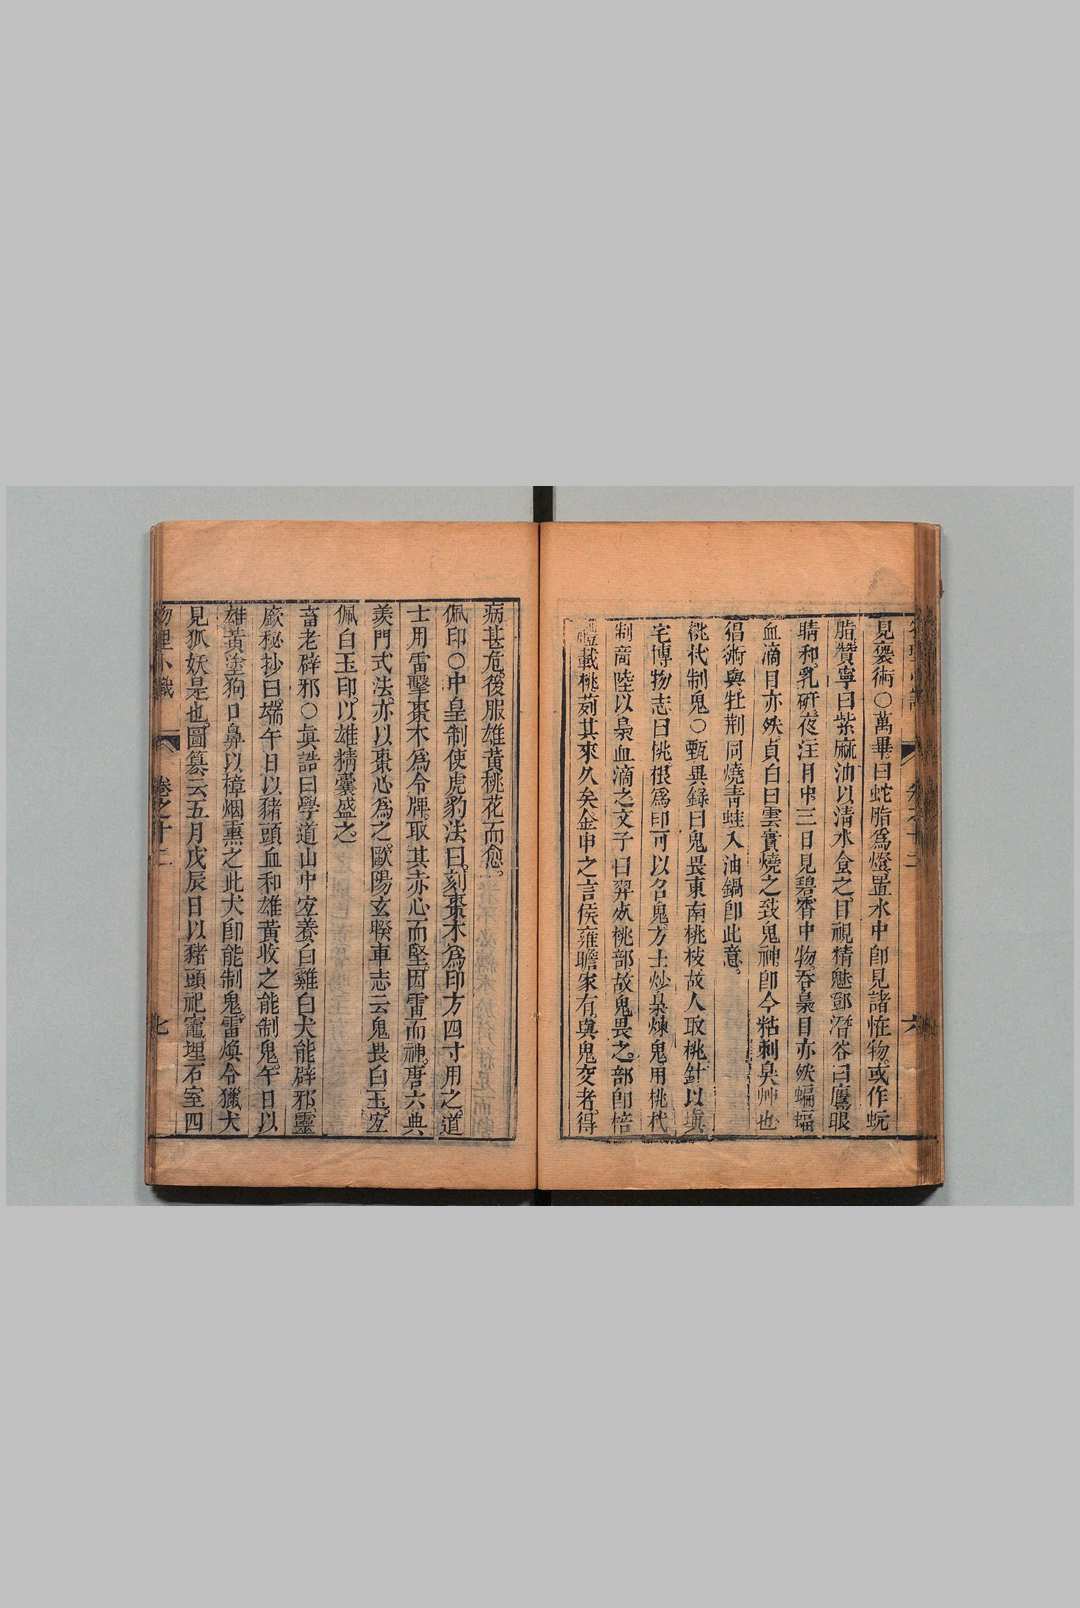 見褻術○萬畢曰蛇脂爲燈置水中卽見諸恠物或作蚖
脂贊寧曰紫麻油以清水食之目視精魅鄧潛谷曰鷹眼
睛和乳研夜注目中三日見碧霄中物吞梟目亦然蝙蝠
血滴目亦然貞白曰雲實燒之致鬼神卽今粘刺臭艸也
倡術與牡荆同燒青蛙入油鍋卽此意
桃杙制鬼○甄異錄曰鬼畏東南桃枝故人取桃針以塡
宅博物志曰桃根爲印可以名鬼方士炒梟煉鬼用桃杙
制商陸以梟血滴之文子曰羿死桃部故鬼畏之部卽棓
禮載桃茢其來久矣金申之言侯雍瞻家有與鬼交者得
病甚危後服雄黃桃花而愈
佩印○中皇制使虎豹法曰刻棗木爲印方四寸用之道
士用雷擊棗木爲令牌取其赤心而堅因雷而神唐六典
羙門式法亦以棗心爲之歐陽玄睽車志云鬼畏白玉宐
佩白玉印以雄精囊盛之
畜老辟邪○眞誥曰學道山中宐養白雞白犬能辟邪靈
廞秘抄曰端午日以豬頭血和雄黃收之能制鬼午日以
雄黃塗狗口鼻以樟烟熏之此犬卽能制鬼雷煥令獵犬
見狐妖是也圖纂云五月戊辰日以豬頭祀竈埋石室四
物理小識 卷之十二 七